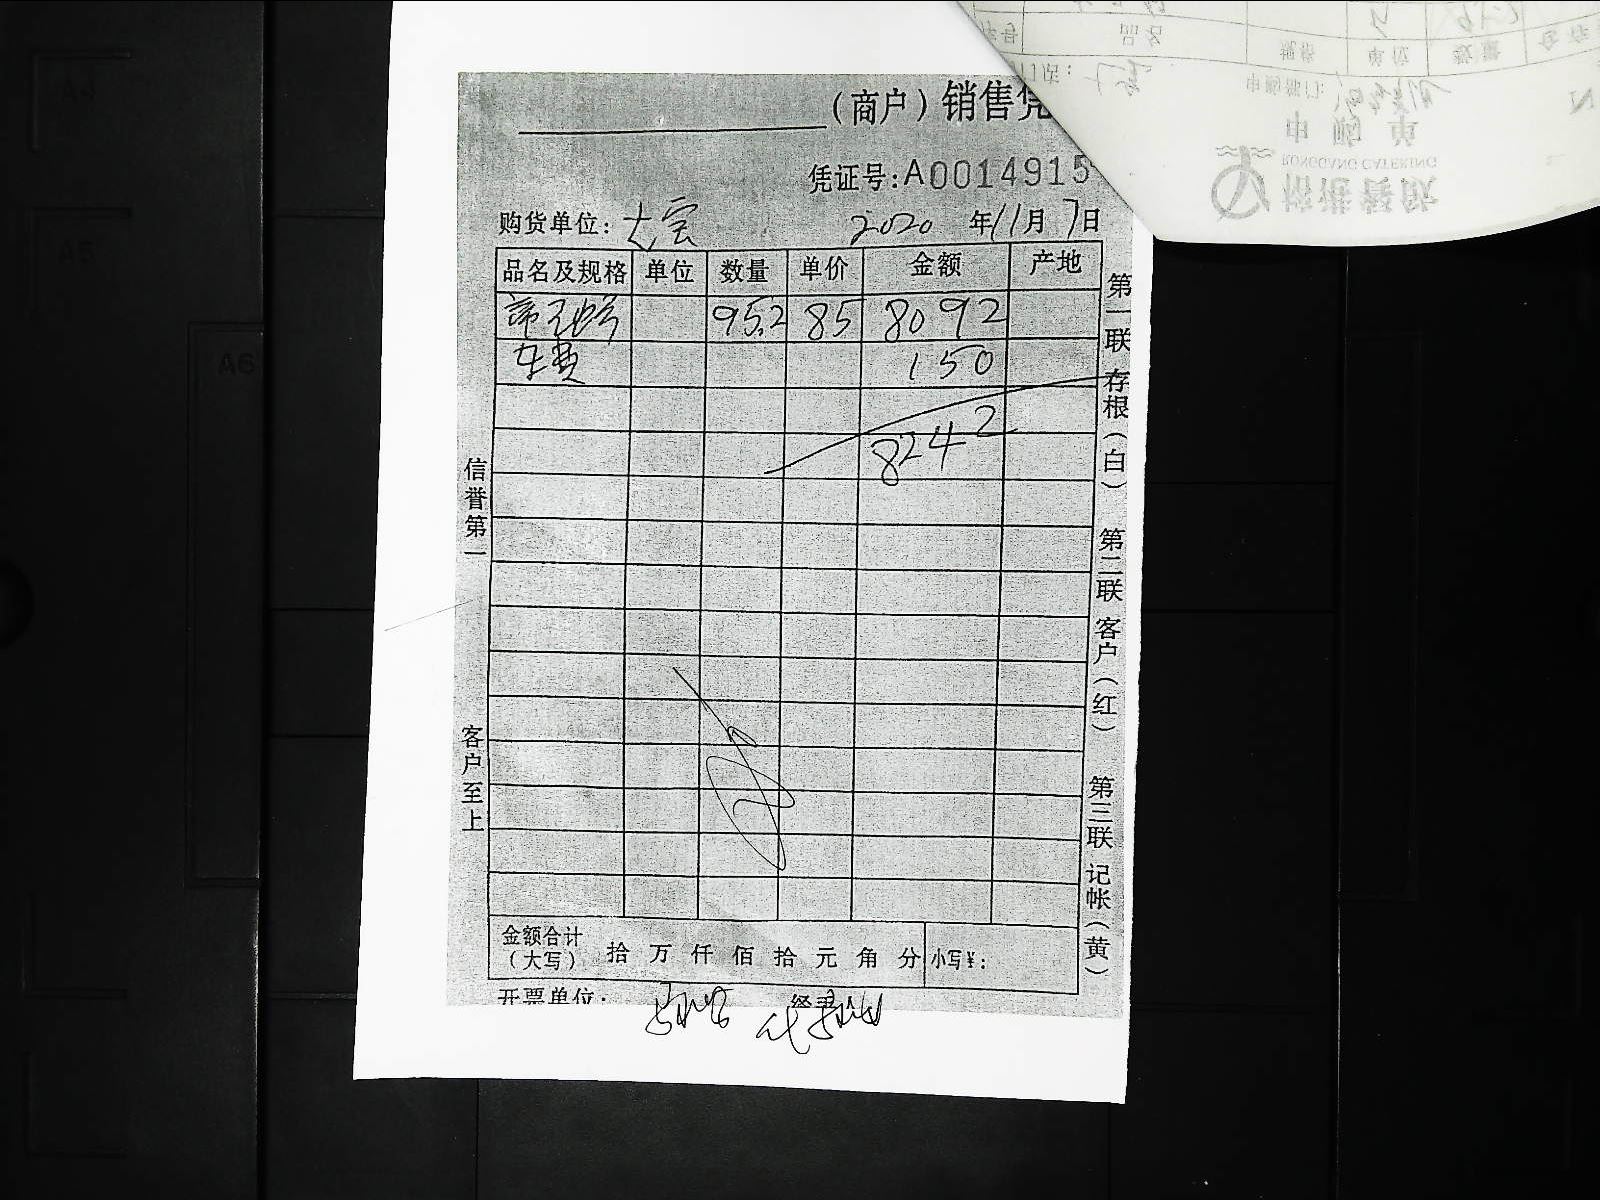 （商户）销售凭
凭证号:A0014915
购货单位: 大宝 2020 年 11 月 7 日
品名及规格 单位 数量 单价 金额 产地
95.2 85 8092
车费 150
8242
金额合计（大写） 拾 万 仟 佰 拾 元 角 分 小写¥:
开票单位:
信誉第一
客户至上
第一联 存根（白）
第二联 客户（红）
第三联 记帐（黄）
RONGGANG CATERING
申购单
申购部门:
品名 规格 单位 数量
A4
A5
A6